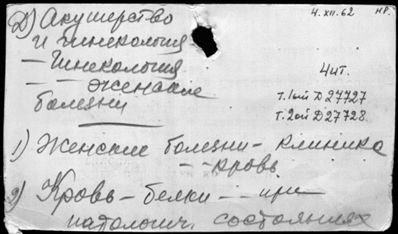 Д) Акушерство
4.XII.62 НР.
и гинекология
– Гинекология
– Женские
болезни
4 чит.
т. 1ый Д 27727
т. 2ой Д 27728.
1) Женские болезни – клиника
– – кровь
2) Кровь – белки – при
патологич. состояниях